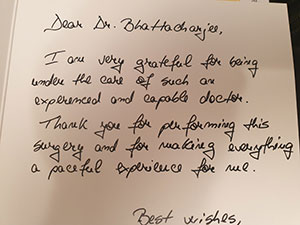 Dear Dr. Bhattacharjee,
I am very grateful for being
under the care of such an
experienced and capable doctor.
Thank you for performing this
surgery and for making everything
a paceful experience for me.
Best wishes,